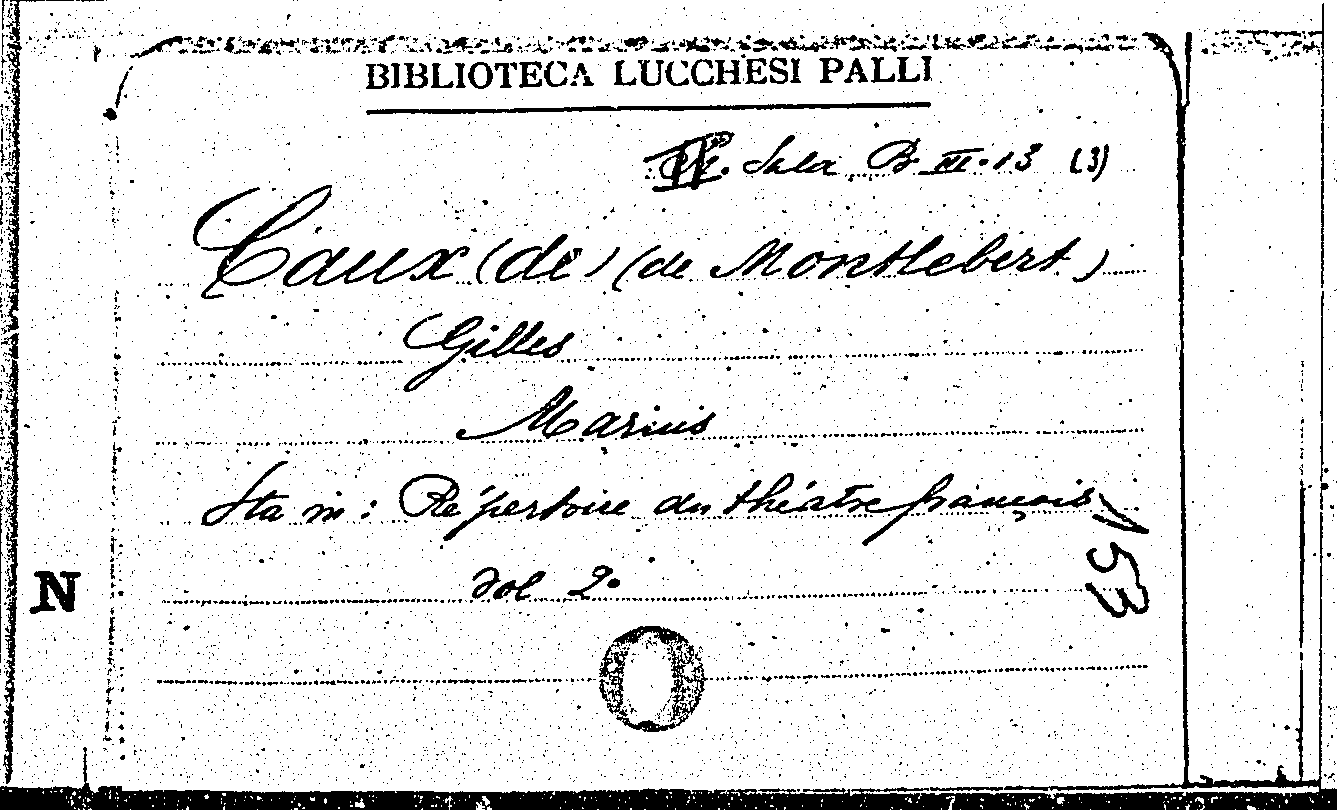 BIBLIOTECA LUCCHESI PALLI
Sala B. III. 13 (3)
Caux (de) (de Montlebert)
Gilles
Marius
Sta in: Répertoire du théâtre français
vol 2º
153
N